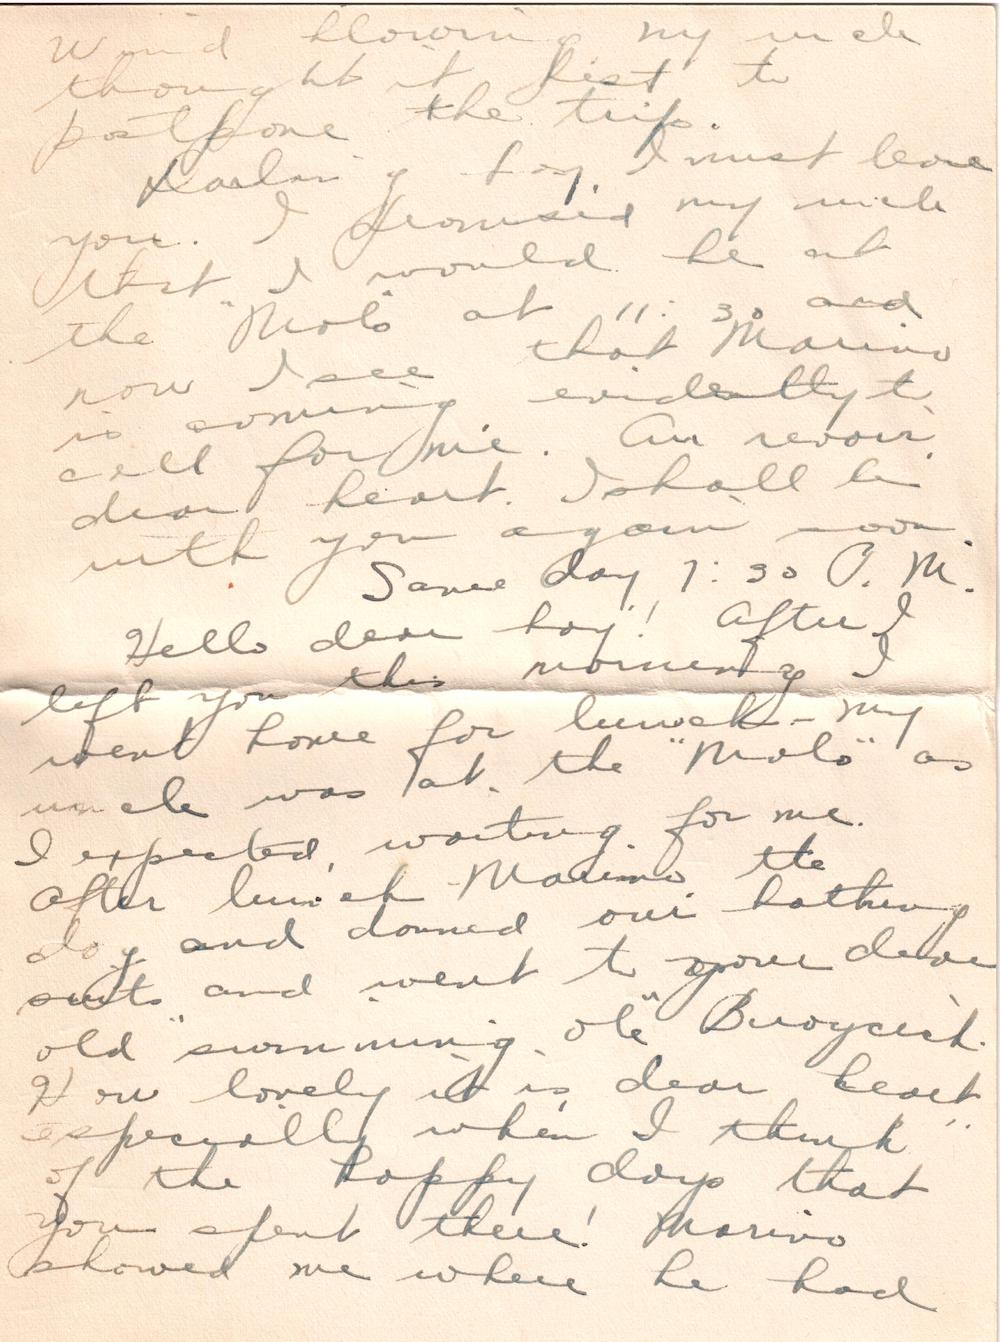 Wind blowing my uncle
thought it best to
postpone the trip.
Darling boy, I must leave
you. I promised my uncle
that I would be at
the "Molo" at 11:30 and
now I see that Marino
is coming evidently to
call for me. Au revoir,
dear heart. I shall be
with you again soon.
Same day 7:30 P.M.
Hello dear boy! After I
left you this morning I
went home for lunch - my
uncle was at the "Molo" as
I expected, waiting for me.
After lunch Marino the
dog and donned our bathing
suits and went to your dear
old "swimming 'ole"
How lovely it is, dear heart
especially when I think
of the happy days that
you spent there! Marino
showed me where he had